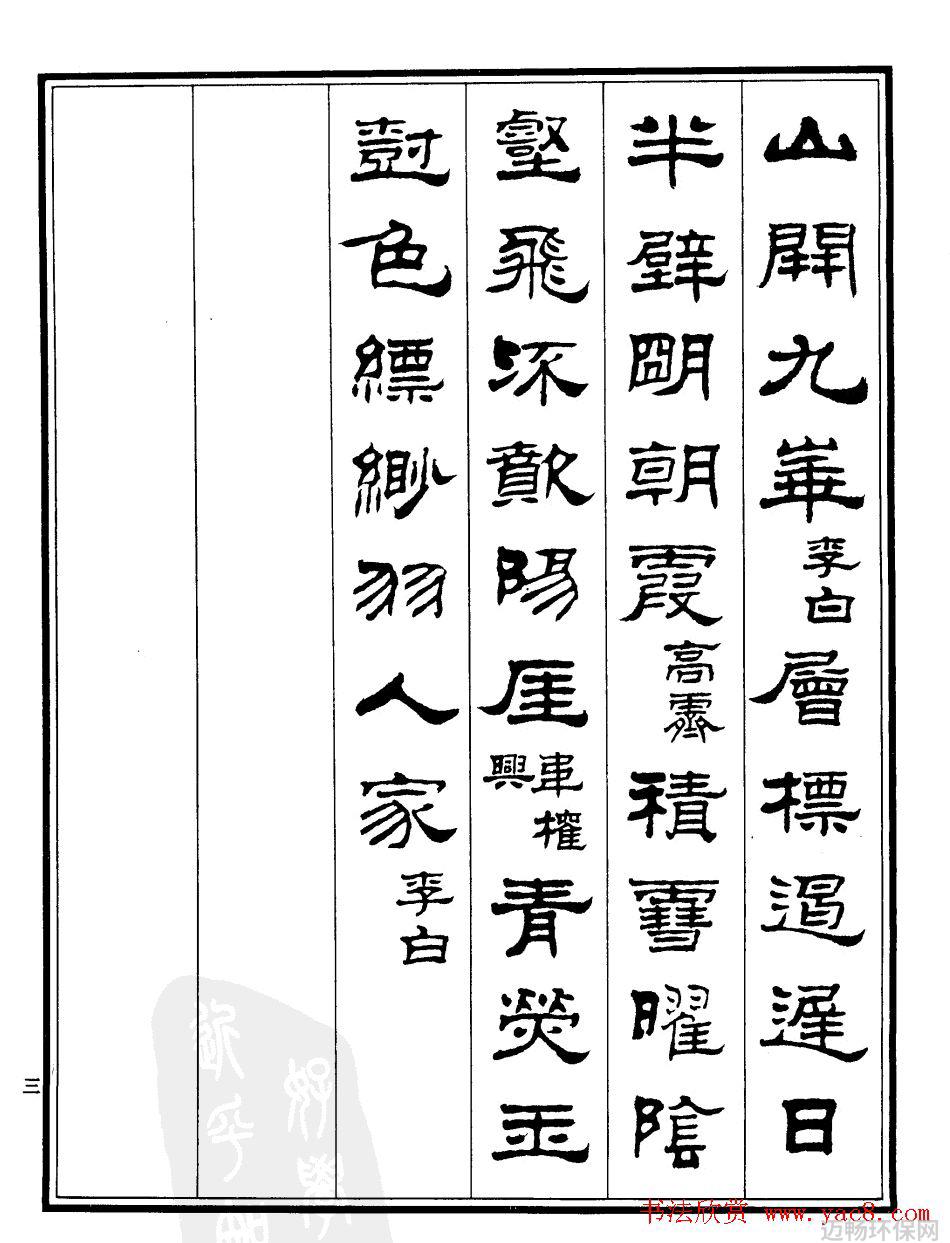 山開九華李白層標遏遲日
半壁朙朝霞高霽積雪曜陰
壑飛流歕陽厓韋權興青熒玉
樹色縹緲羽人家李白
三
书法欣赏 www.yac8.com
迈畅环保网